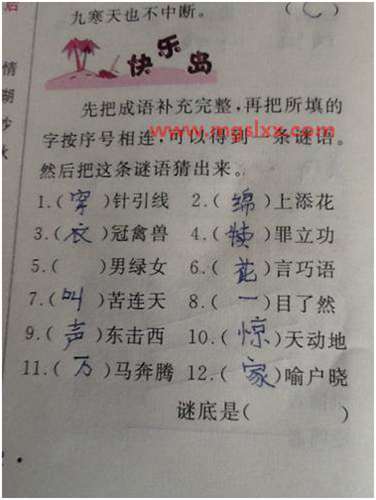 九寒天也不中断。
快乐岛
先把成语补充完整，再把所填的
www.mgslxx.com
字按序号相连，可以得到一条谜语。
然后把这条谜语猜出来。
1.(穿)针引线 2.(绵)上添花
3.(衣)冠禽兽 4.(赎)罪立功
5.( )男绿女 6.(花)言巧语
7.(叫)苦连天 8.(一)目了然
9.(声)东击西 10.(惊)天动地
11.(万)马奔腾 12.(家)喻户晓
谜底是( )